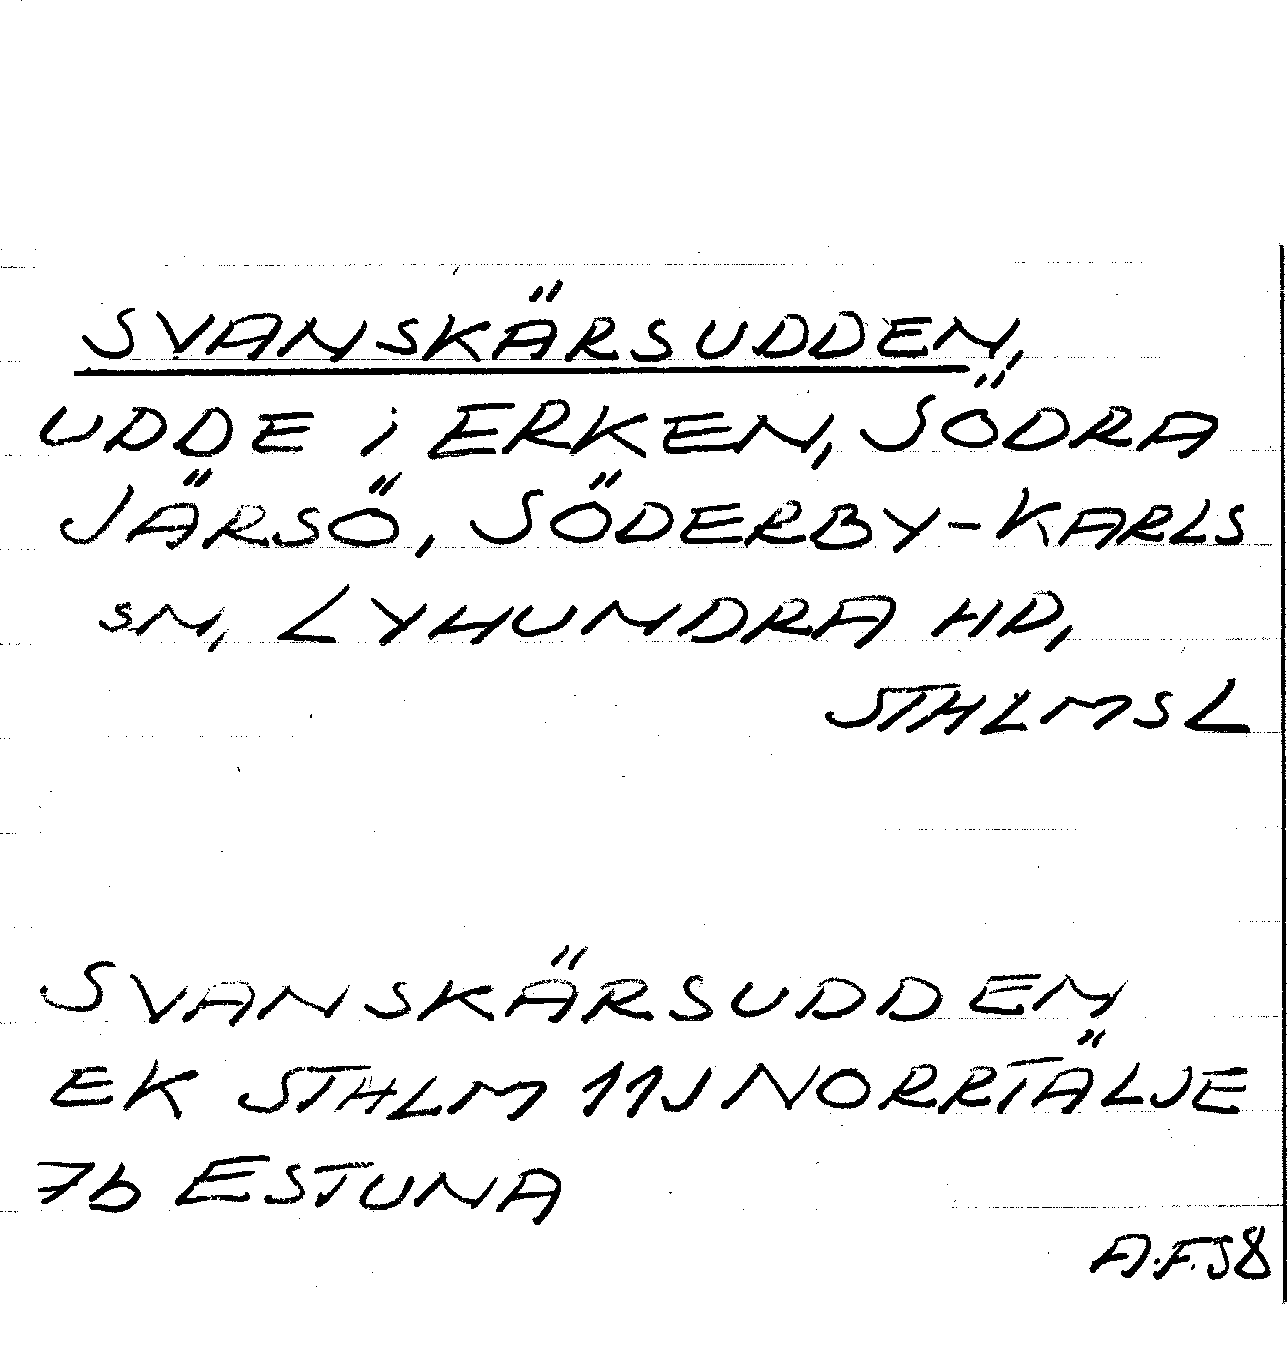 SVANSKÄRSUDDEN,
UDDE i ERKEN, SÖDRA
JÄRSÖ, SÖDERBY-KARLS
SN, LYHUNDRA HD,
STHLMS L
SVANSKÄRSUDDEN
EK STHLM 11J NORRTÄLJE
7b ESTUNA
A.F.58